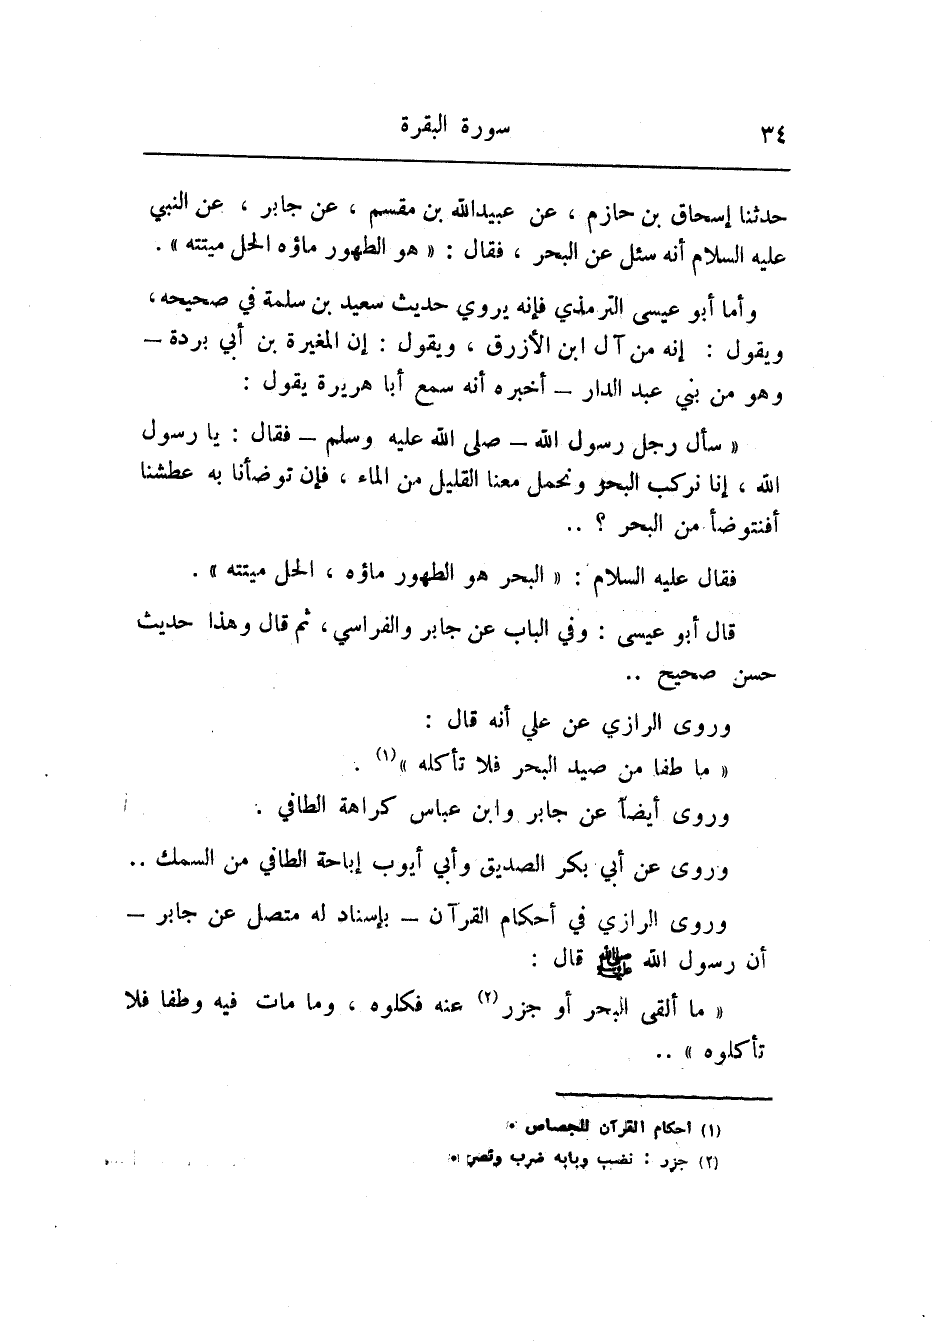 ٣٤
سورة البقرة
حدثنا إسحاق بن حازم ، عن عبيدالله بن مقسم ، عن جابر ، عن النبي
عليه السلام أنه سئل عن البحر ، فقال : « هو الطهور ماؤه الحل ميتته » .
وأما أبو عيسى الترمذي فإنه يروي حديث سعيد بن سلمة في صحيحه،
ويقول : إنه من آل ابن الأزرق ، ويقول : إن المغيرة بن أبي بردة –
وهو من بني عبد الدار – أخبره أنه سمع أبا هريرة يقول :
« سأل رجل رسول الله – صلى الله عليه وسلم – فقال : يا رسول
الله ، إنا نركب البحر ونحمل معنا القليل من الماء ، فإن توضأنا به عطشنا
أفنتوضأ من البحر ؟ ..
فقال عليه السلام : « البحر هو الطهور ماؤه ، الحل ميتته » .
قال أبو عيسى : وفي الباب عن جابر والفراسي، ثم قال وهذا حديث
حسن صحيح ..
وروى الرازي عن علي أنه قال :
« ما طفا من صيد البحر فلا تأكله »(١) .
وروى أيضاً عن جابر وابن عباس كراهة الطافي .
وروى عن أبي بكر الصديق وأبي أيوب إباحة الطافي من السمك ..
وروى الرازي في أحكام القرآن – بإسناد له متصل عن جابر –
أن رسول الله ﷺ قال :
« ما ألقى البحر أو جزر(٢) عنه فكلوه ، وما مات فيه وطفا فلا
تأكلوه » ..
(١) أحكام القرآن للجصاص .
(٢) جزر : نضب وبابه ضرب ونصر .